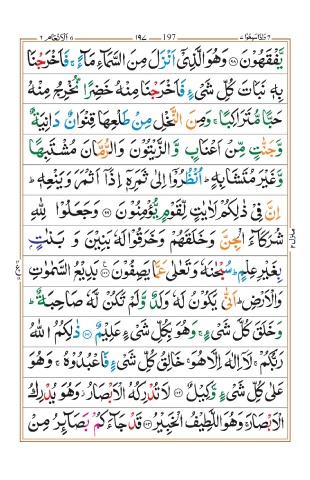 وَاِذَا سَمِعُوْا ٧ 197 ١٩٧ اَلْاَنْعَام ٦
يَّفْقَهُوْنَ ۝۹۸ وَهُوَ الَّذِيْۤ اَنْزَلَ مِنَ السَّمَآءِ مَآءً ۚ فَاَخْرَجْنَا
بِهٖ نَبَاتَ كُلِّ شَيْءٍ فَاَخْرَجْنَا مِنْهُ خَضِرًا نُّخْرِجُ مِنْهُ
حَبًّا مُّتَرَاكِبًا ۚ وَمِنَ النَّخْلِ مِنْ طَلْعِهَا قِنْوَانٌ دَانِيَةٌ
وَّجَنّٰتٍ مِّنْ اَعْنَابٍ وَّالزَّيْتُوْنَ وَالرُّمَّانَ مُشْتَبِهًا
وَّغَيْرَ مُتَشَابِهٍ ؕ اُنْظُرُوْۤا اِلٰى ثَمَرِهٖۤ اِذَاۤ اَثْمَرَ وَيَنْعِهٖ ؕ
اِنَّ فِيْ ذٰلِكُمْ لَاٰيٰتٍ لِّقَوْمٍ يُّؤْمِنُوْنَ ۝۹۹ وَجَعَلُوْا لِلّٰهِ
شُرَكَآءَ الْجِنَّ وَخَلَقَهُمْ وَخَرَقُوْا لَهٗ بَنِيْنَ وَ بَنٰتٍۭ
بِغَيْرِ عِلْمٍ ؕ سُبْحٰنَهٗ وَتَعٰلٰى عَمَّا يَصِفُوْنَ ۝۱۰۰ بَدِيْعُ السَّمٰوٰتِ
وَالْاَرْضِ ؕ اَنّٰى يَكُوْنُ لَهٗ وَلَدٌ وَّلَمْ تَكُنْ لَّهٗ صَاحِبَةٌ ؕ
وَخَلَقَ كُلَّ شَيْءٍ ۚ وَهُوَ بِكُلِّ شَيْءٍ عَلِيْمٌ ۝۱۰۱ ذٰلِكُمُ اللّٰهُ
رَبُّكُمْ ۚ لَاۤ اِلٰهَ اِلَّا هُوَ ۚ خَالِقُ كُلِّ شَيْءٍ فَاعْبُدُوْهُ ۚ وَهُوَ
عَلٰى كُلِّ شَيْءٍ وَّكِيْلٌ ۝۱۰۲ لَا تُدْرِكُهُ الْاَبْصَارُ ۫ وَهُوَ يُدْرِكُ
الْاَبْصَارَ ۚ وَهُوَ اللَّطِيْفُ الْخَبِيْرُ ۝۱۰۳ قَدْ جَآءَكُمْ بَصَآئِرُ مِنْ
منزل ٢